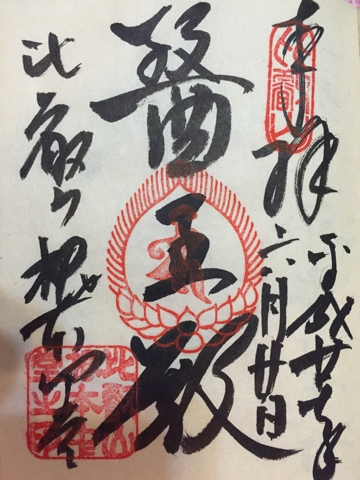 奉拝
平成廿七年
六月廿日
醫王殿
比叡山 根本中堂